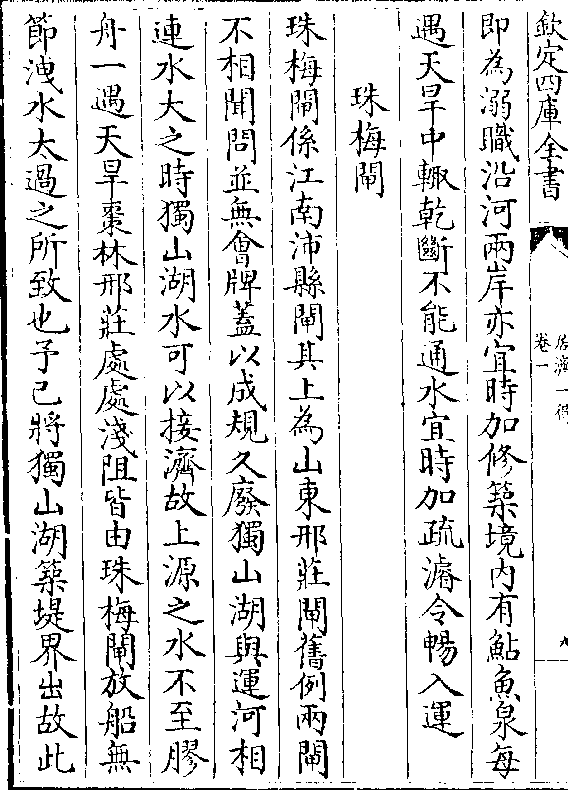 欽定四庫全書
居濟一得
卷一
九
即為溺職沿河兩岸亦宜時加修築境內有鮎魚泉每
遇天旱中輙乾斷不能通水宜時加疏濬令暢入運
珠梅閘
珠梅閘係江南沛縣閘其上為山東邢莊閘舊例兩閘
不相聞問並無會牌蓋以成規久廢獨山湖與運河相
連水大之時獨山湖水可以接濟故上源之水不至膠
舟一遇天旱棗林邢莊處處淺阻皆由珠梅閘放船無
節洩水太過之所致也予已將獨山湖築堤界出故此